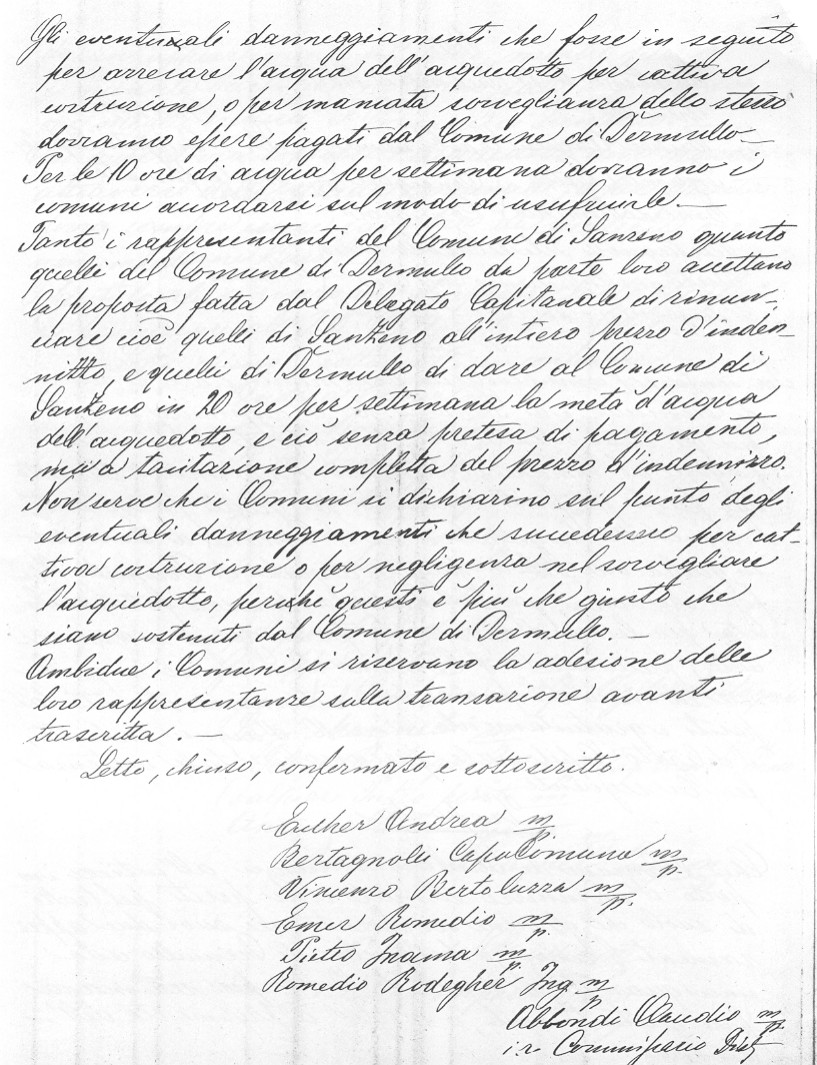 Gli eventuali danneggiamenti che fosse in seguito
per arrecare l'acqua dell'acquedotto per cattiva
costruzione, o per mancata sorveglianza dello stesso
dovranno essere pagati dal Comune di Dermullo —
Per le 10 ore di acqua per settimana dovranno i
comuni accordarsi sul modo di usufruirle. —
Tanto i rappresentanti del Comune di Sanzeno quanto
quelli del Comune di Dermullo da parte loro accettano
la proposta fatta dal Delegato Capitanale di rinun-
ciare cioè quelli di Sanzeno all'intiero prezzo d'inden-
nitto, e quelli di Dermullo di dare al Comune di
Sanzeno in 20 ore per settimana la metà d'acqua
dell'acquedotto, e ciò senza pretesa di pagamento,
ma a tacitazione completta del prezzo d'indennizzo.
Non serve che i Comuni si dichiarino sul punto degli
eventuali danneggiamenti che succedessero per cat-
tiva costruzione o per negligenza nel sorvegliare
l'acquedotto, perchè questi è più che giusto che
siano sostenuti dal Comune di Dermullo. —
Ambidue i Comuni si riservano la adesione delle
loro rappresentanze sulla transazione avanti
trascritta. —
Letto, chiuso, confermato e sottoscritto.
Eccher Andrea m/p.
Bertagnolli CapoComune m/p.
Vincenzo Bertoluzza m/p.
Emer Romedio m/p.
Pietro Inama m/p.
Romedio Rodegher Ing. m/p
Abbondi Claudio m/p.
i. r. Commissario